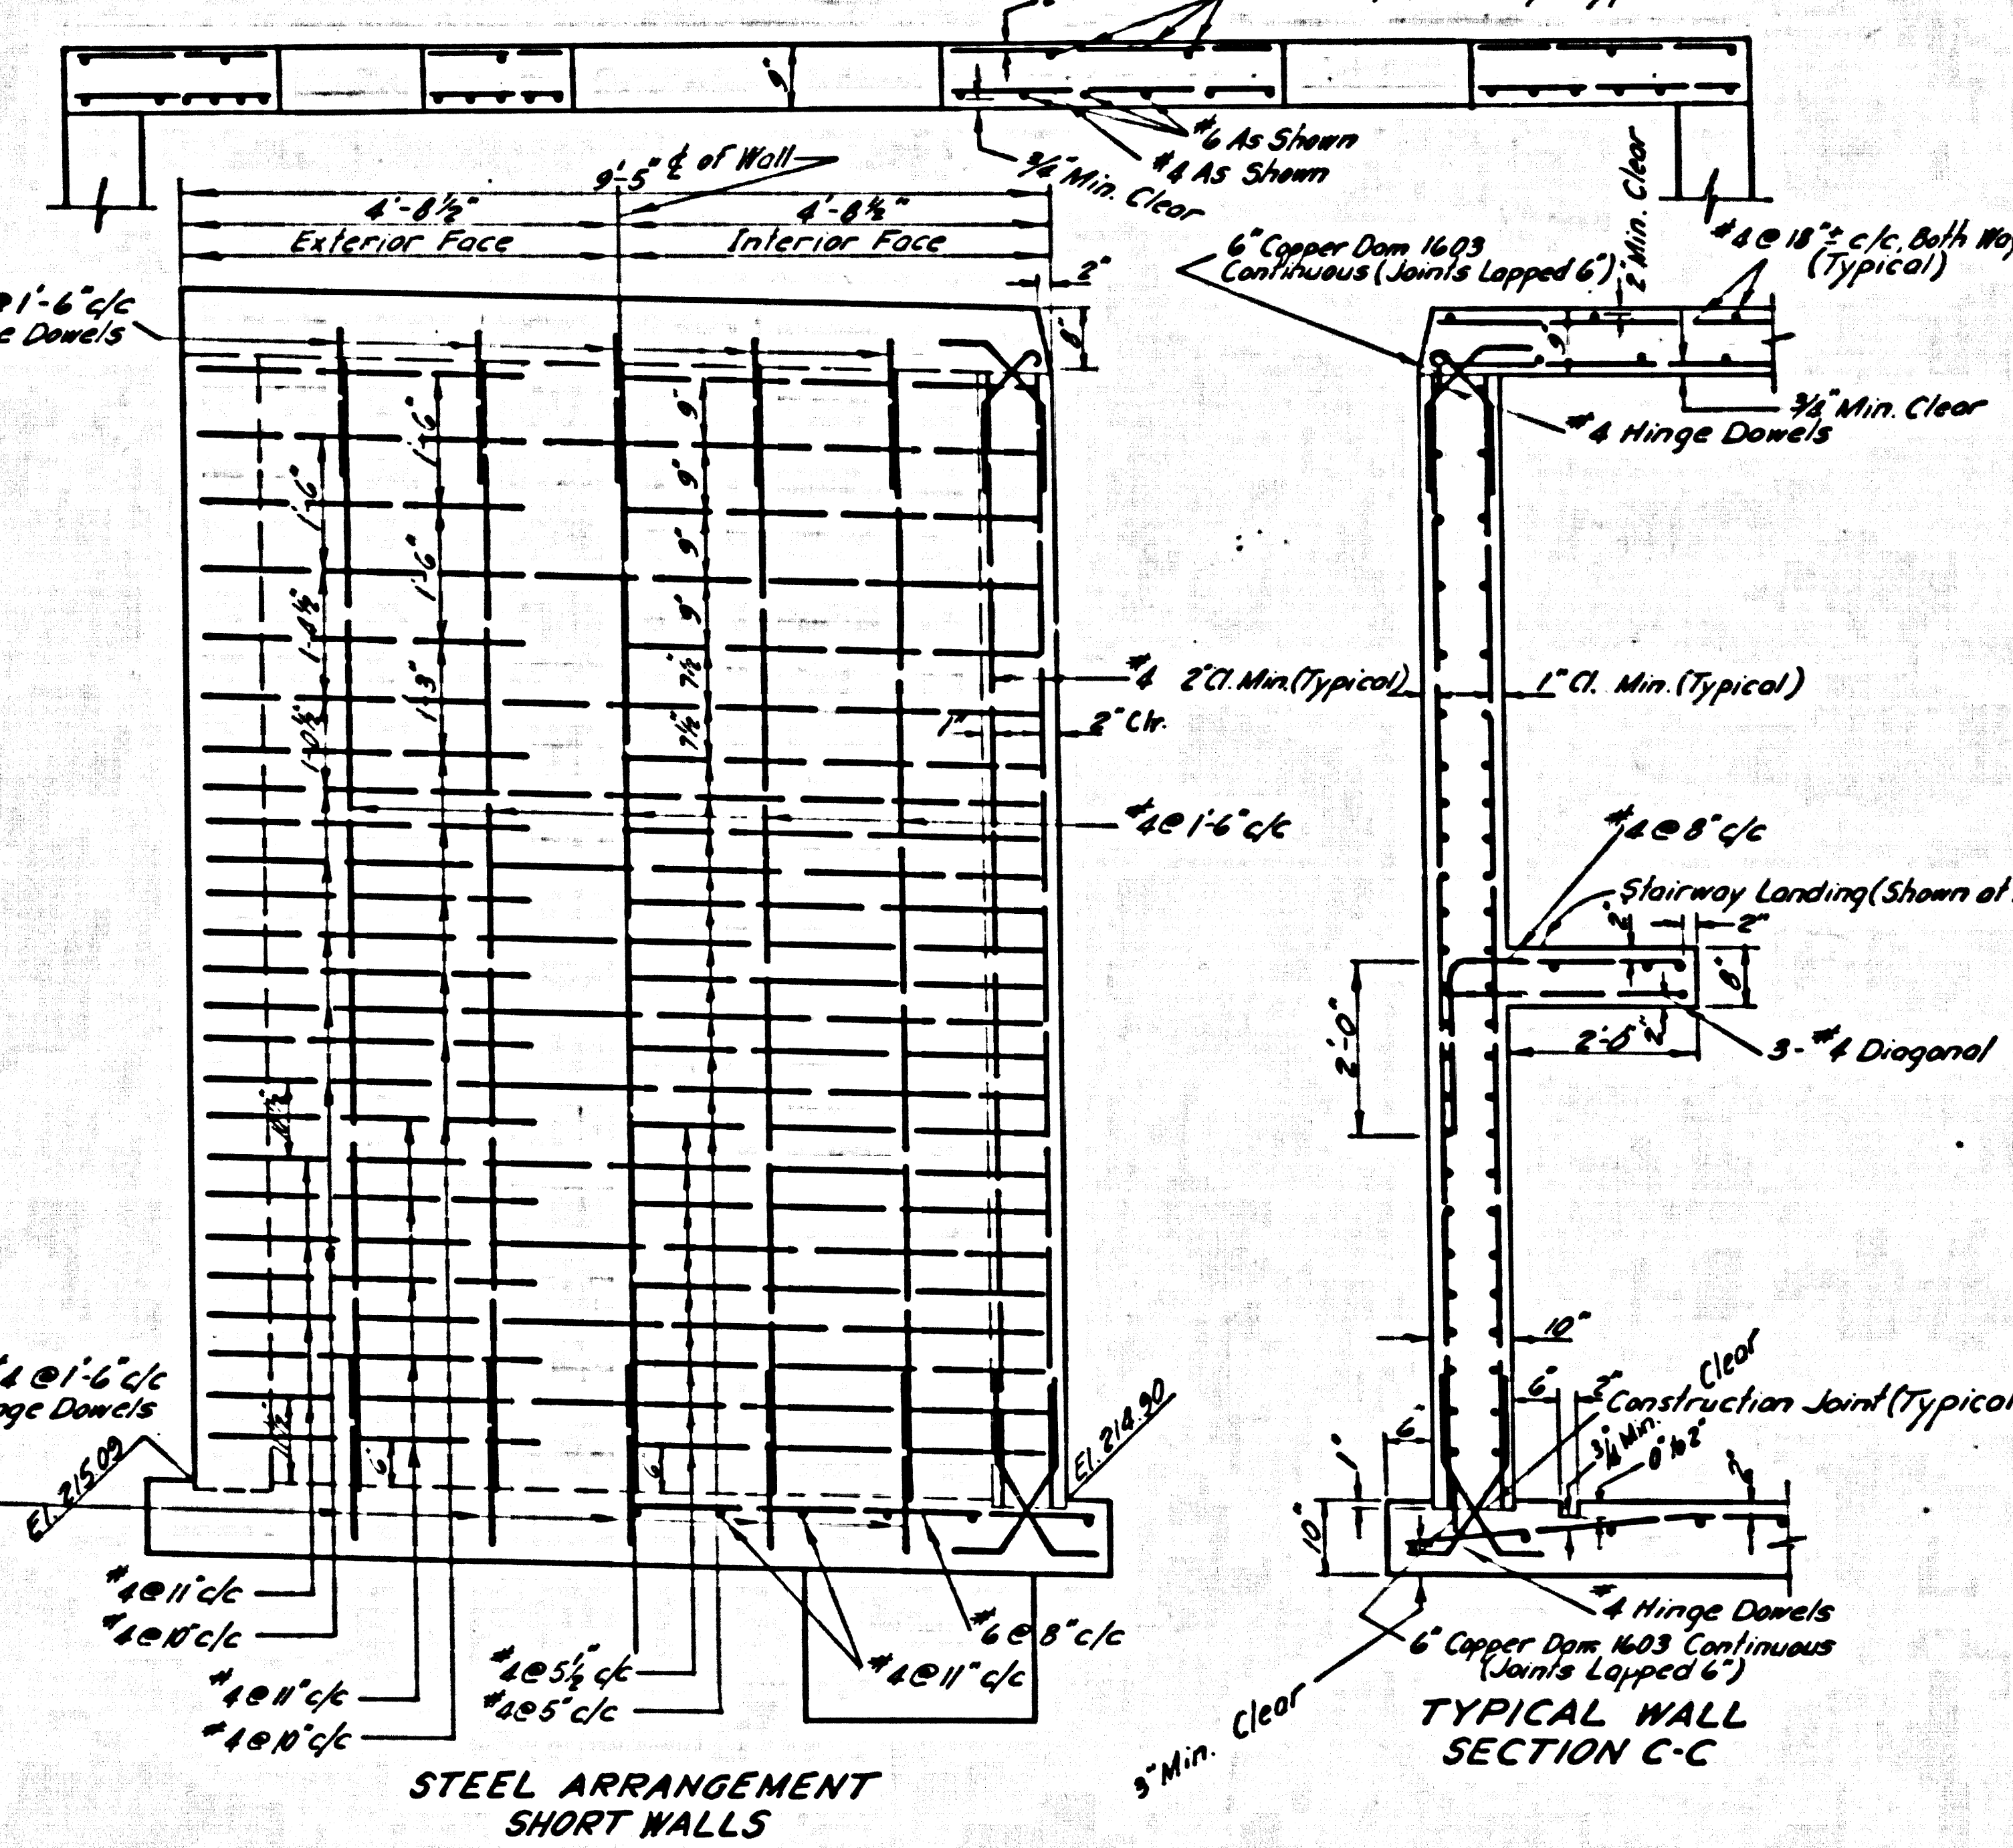 9"
#6 As Shown
#4 As Shown
3/4" Min. Clear
9'-5"
℄ of Wall
4'-8½"
4'-8½"
Exterior Face
Interior Face
2"
8"
@ 1'-6" c/c
Dowels
6" Copper Dam 1603
Continuous (Joints Lapped 6")
2" Min. Clear
#4 @ 18"± c/c, Both
(Typical)
9"
3/4" Min. Clear
#4 Hinge Dowels
1'-6"
9"
1'-6"
9"
1'-6"
9"
1'-4½"
9"
1'-3"
7½"
7½"
1'-0½"
#4
2" Cl. Min. (Typical)
1" Cl. Min. (Typical)
1"
2" Clr.
#4 @ 1'-6" c/c
#4 @ 8" c/c
Stairway Landing (Shown at
2"
2"
8"
2'-0"
2"
3-#4 Diagonal
10½"
10"
6"
2"
Clear
Construction Joint (Typical
3/4" Min.
0" to 2"
2"
6"
1"
10"
#4 @ 1'-6" c/c
Dowels
El. 215.09
6"
6"
El. 214.90
#4 @ 11" c/c
#4 @ 10" c/c
#4 @ 11" c/c
#4 @ 10" c/c
#4 @ 5½" c/c
#4 @ 5" c/c
#6 @ 8" c/c
#4 @ 11" c/c
#4 Hinge Dowels
6" Copper Dam 1603 Continuous
(Joints Lapped 6")
3" Min. Clear
STEEL ARRANGEMENT
SHORT WALLS
TYPICAL WALL
SECTION C-C